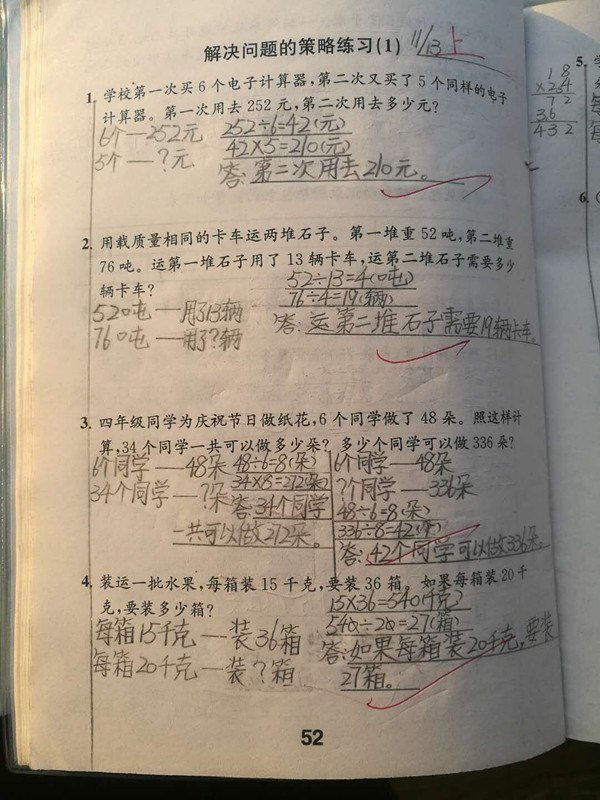 解决问题的策略练习(1)
11/13 上
1. 学校第一次买6个电子计算器,第二次又买了5个同样的电子
计算器。第一次用去252元,第二次用去多少元?
6个——252元
5个——?元
252÷6=42(元)
42×5=210(元)
答:第二次用去210元。
2. 用载质量相同的卡车运两堆石子。第一堆重52吨,第二堆重
76吨。运第一堆石子用了13辆卡车,运第二堆石子需要多少
辆卡车?
52吨——用了13辆
76吨——用了?辆
52÷13=4(吨)
76÷4=19(辆)
答:运第二堆石子需要19辆卡车。
3. 四年级同学为庆祝节日做纸花,6个同学做了48朵。照这样计
算,34个同学一共可以做多少朵?多少个同学可以做336朵?
6个同学——48朵
34个同学——?朵
48÷6=8(朵)
34×8=212(朵)
答:34个同学
一共可以做212朵。
6个同学——48朵
?个同学——336朵
48÷6=8(朵)
336÷8=42(个)
答:42个同学可以做336朵。
4. 装运一批水果,每箱装15千克,要装36箱。如果每箱装20千
克,要装多少箱?
每箱15千克——装36箱
每箱20千克——装?箱
15×36=540(千克)
540÷20=27(箱)
答:如果每箱装20千克,要装
27箱。
52
5.
18
×24
72
36
432
6.